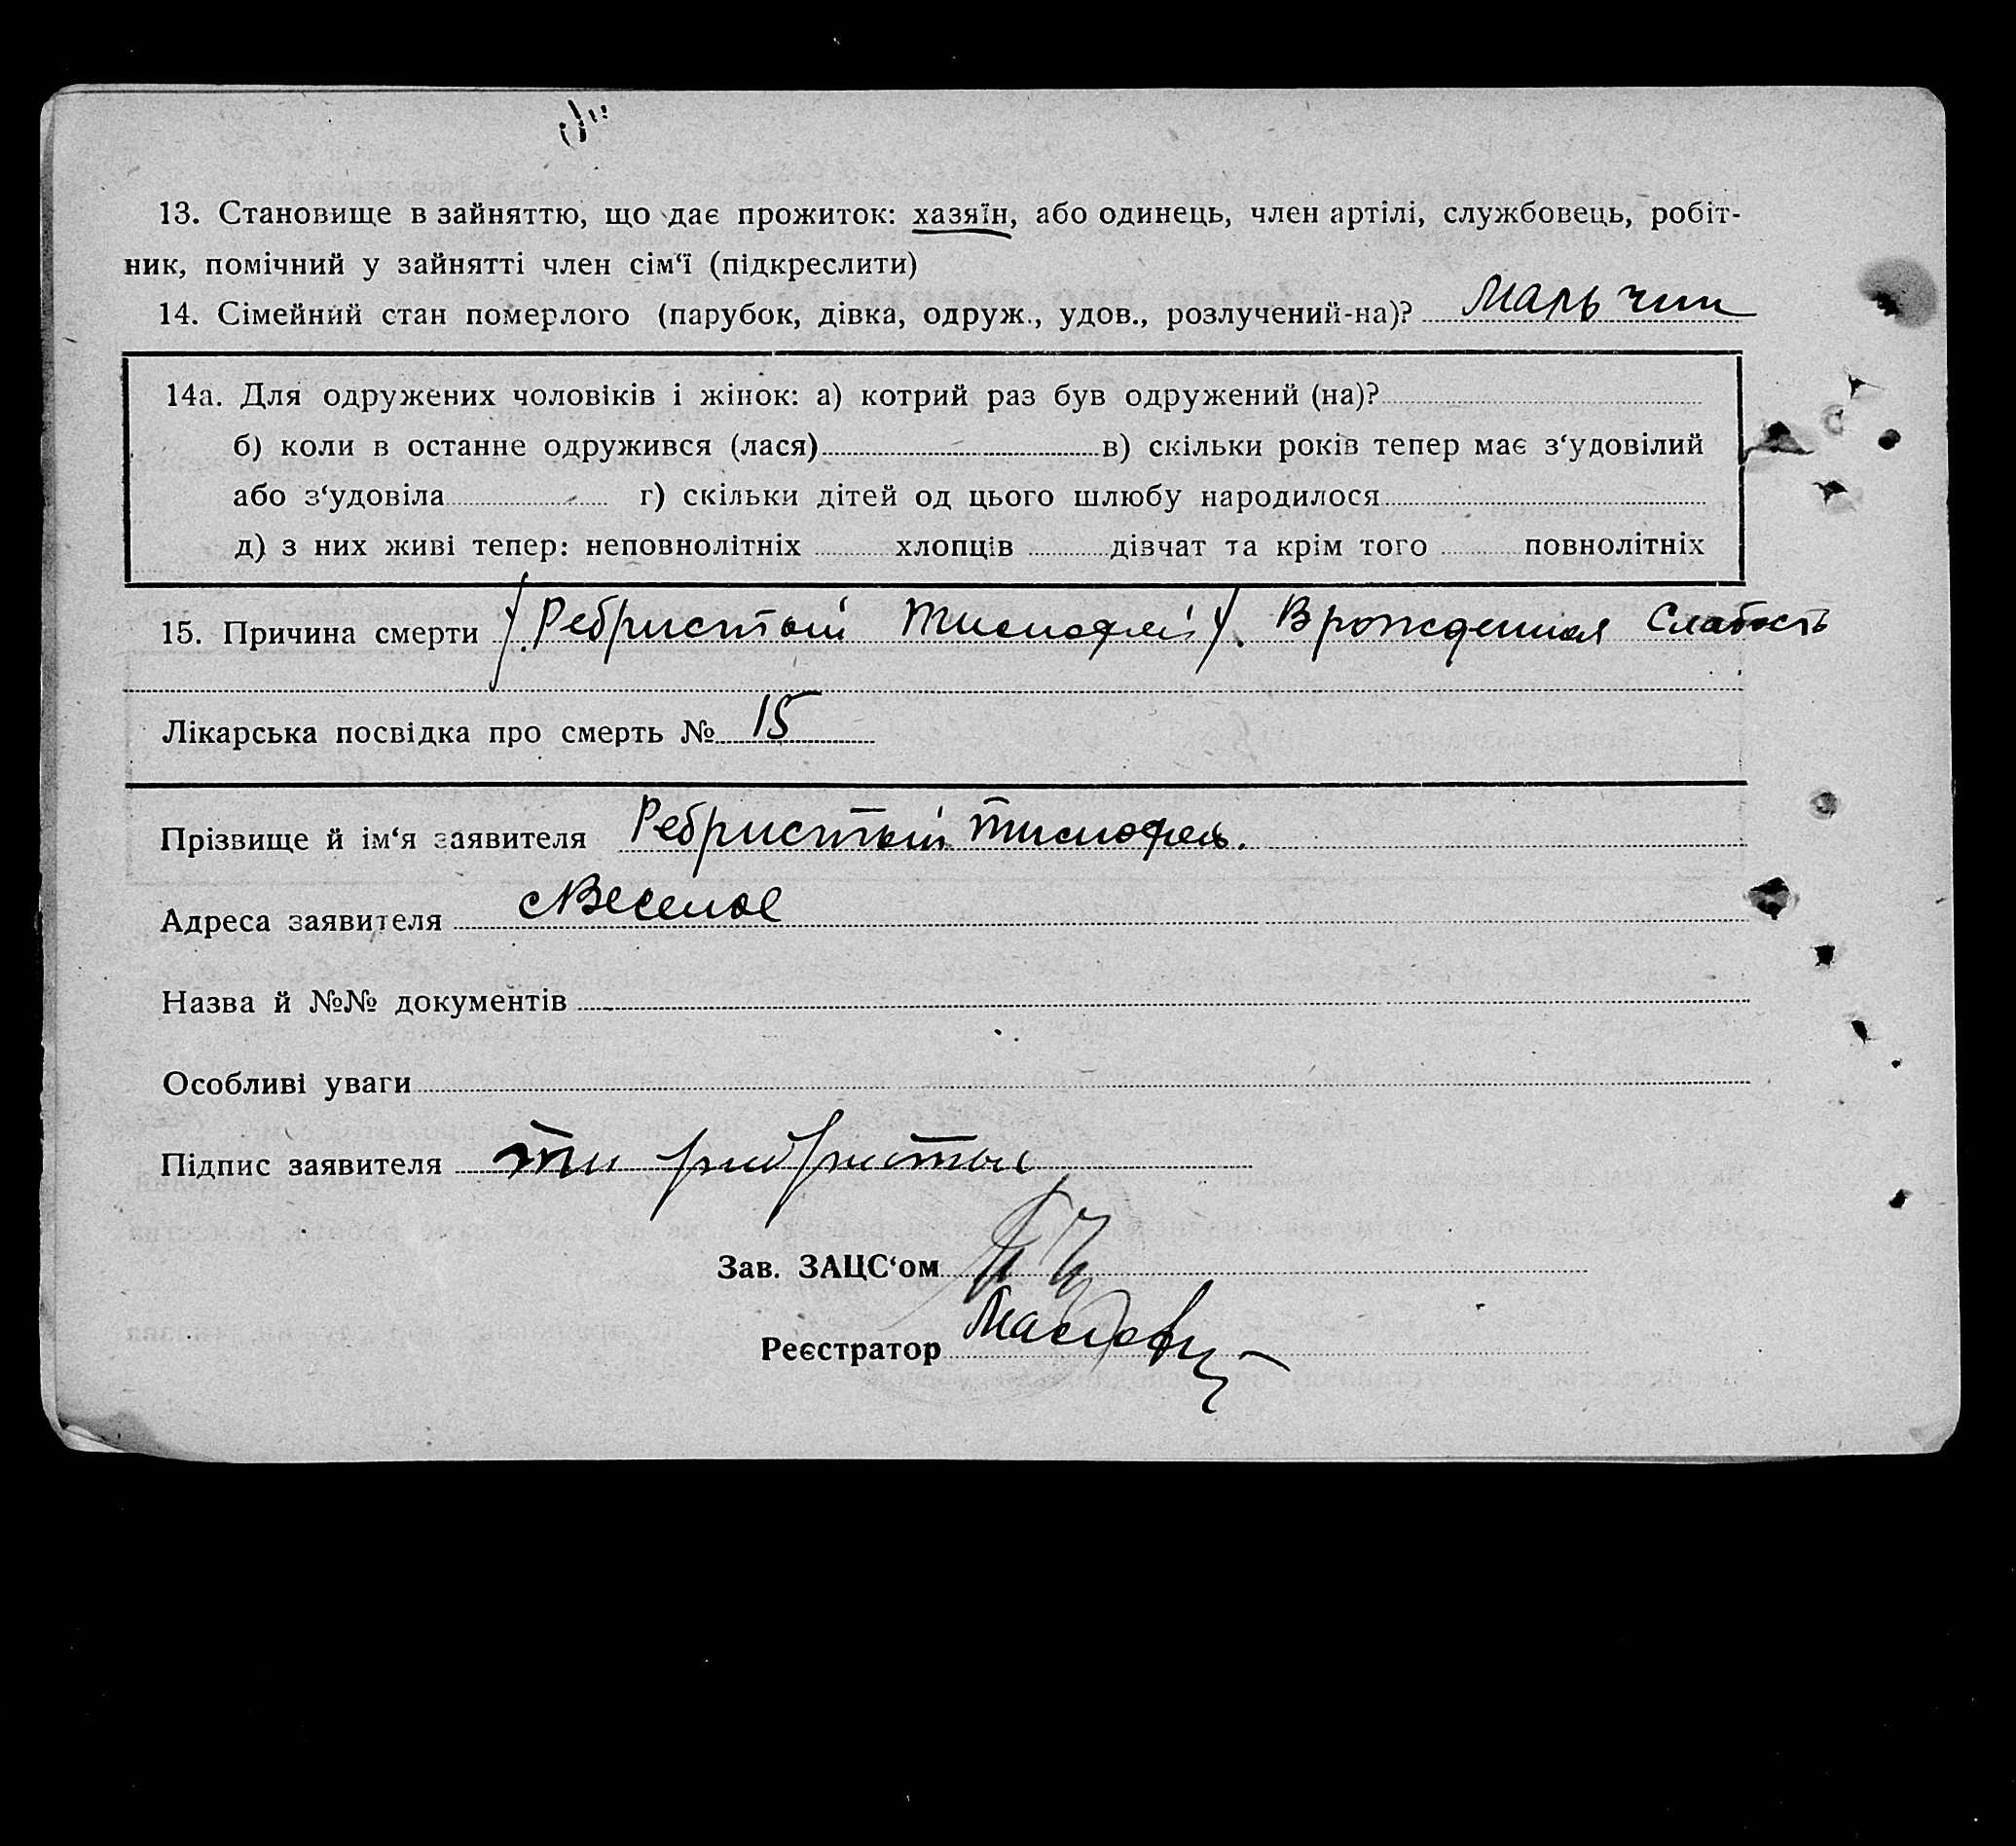 13. Становище в зайняттю, що дає прожиток: хазяїн, або одинець, член артілі, службовець, робіт-
ник, помічний у зайнятті член сім‘ї (підкреслити)
14. Сімейний стан померлого (парубок, дівка, одруж., удов., розлучений-на)? Мальчик
14а. Для одружених чоловіків і жінок: а) котрий раз був одружений (на)?
б) коли в останне одружився (лася) в) скільки років тепер має з‘удовілий
або з‘удовіла г) скільки дітей од цього шлюбу народилося
д) з них живі тепер: неповнолітніх хлопців дівчат та крім того повнолітніх
15. Причина смерти Ребристый Тимофей Врожденная Слабость
Лікарська посвідка про смерть № 15
Прізвище й ім‘я заявителя Ребристый Тимофей.
Адреса заявителя с Веселое
Назва й №№ документів
Особливі уваги
Підпис заявителя
Зав. ЗАЦС‘ом
Реєстратор